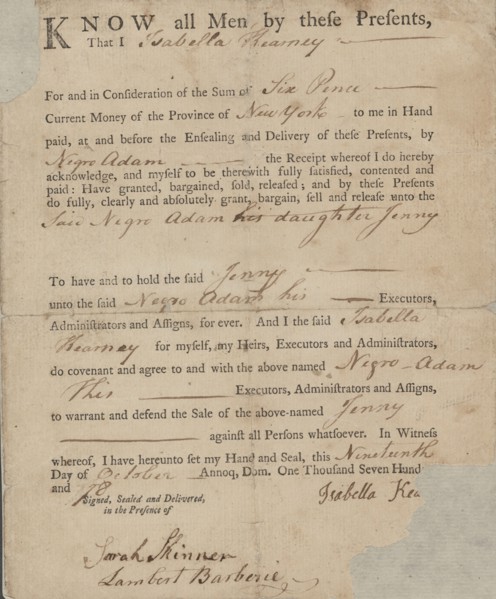 KNOW all Men by theſe Preſents,
That I Isabella Kearney
For and in Conſideration of the Sum of Six Pence
Current Money of the Province of New York to me in Hand
paid, at and before the Enſealing and Delivery of theſe Preſents, by
Negro Adam the Receipt whereof I do hereby
acknowledge, and myſelf to be therewith fully ſatisfied, contented and
paid: Have granted, bargained, ſold, releaſed; and by theſe Preſents
do fully, clearly and abſolutely grant, bargain, ſell and releaſe unto the
Said Negro Adam his daughter Jenny
To have and to hold the ſaid Jenny
unto the ſaid Negro Adam his Executors,
Adminiſtrators and Aſſigns, for ever. And I the ſaid Isabella
Kearney for myſelf, my Heirs, Executors and Adminiſtrators,
do covenant and agree to and with the above named Negro Adam
his Executors, Adminiſtrators and Aſſigns,
to warrant and defend the Sale of the above-named Jenny
againſt all Perſons whatſoever. In Witneſs
whereof, I have hereunto ſet my Hand and Seal, this Nineteenth
Day of October Annoq, Dom. One Thouſand Seven Hund
and
Signed, Sealed and Delivered,
in the Preſence of
Isabella Kea
Sarah Skinner
Lambert Barberie